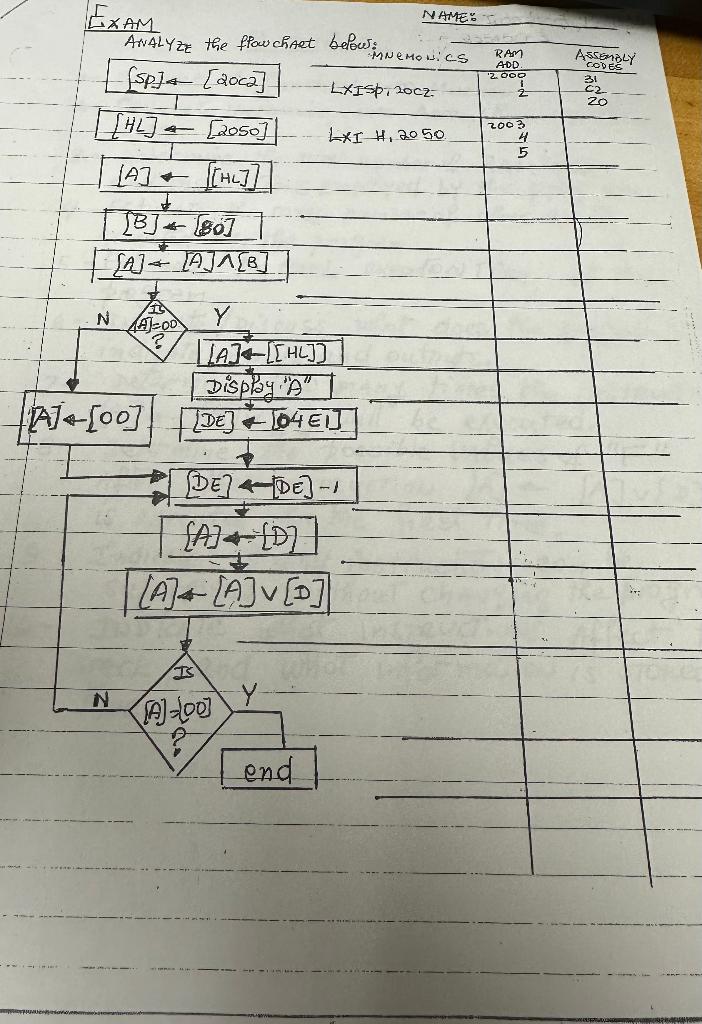 EXAM
NAME:
ANALYZE the flowchart below:
MNEMONICS
RAM ADD.
ASSEMBLY CODES
[SP] ← [20C2]
LXISP, 20C2
2000
1
2
31
C2
20
[HL] ← [2050]
LXI H, 2050
2003
4
5
[A] ← [[HL]]
[B] ← [80]
[A] ← [A] ∧ [B]
Is
[A]=00
?
N
Y
[A] ← [[HL]]
Display "A"
[A] ← [00]
[DE] ← [04E1]
[DE] ← [DE] -1
[A] ← [D]
[A] ← [A] ∨ [D]
Is
[A]=[00]
?
N
Y
end